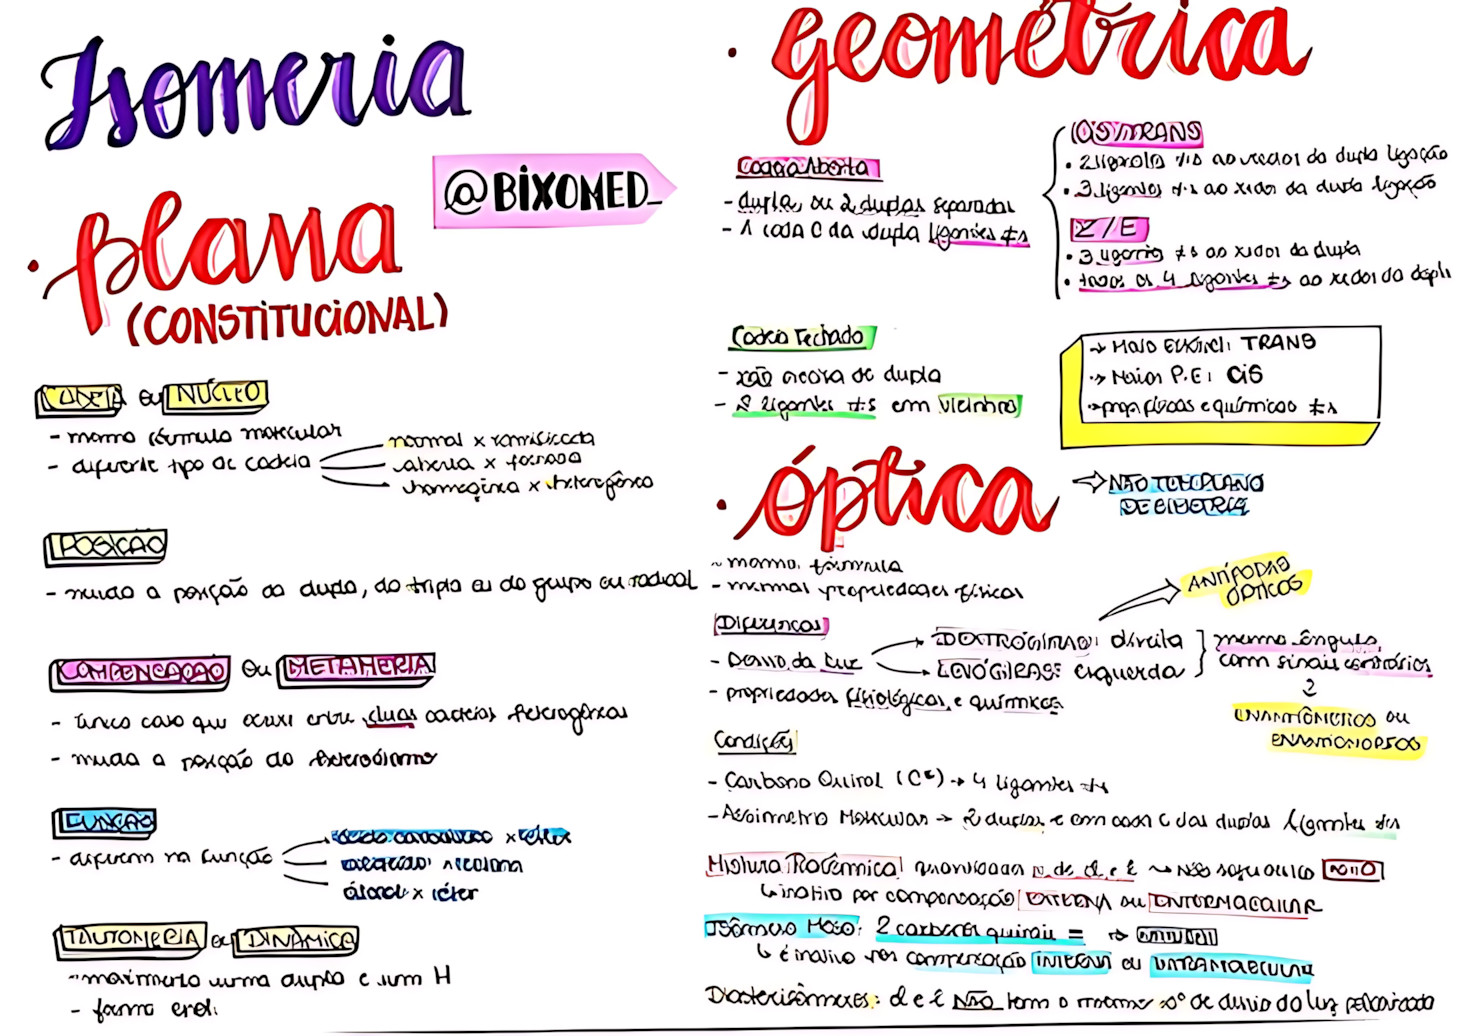 Isomeria
@BIXOMED_
• plana
(CONSTITUCIONAL)
CADEIA ou NÚCLEO
- mesma fórmula molecular
- diferente tipo de cadeia
normal x ramificada
aberta x fechada
homogênea x heterogênea
POSIÇÃO
- muda a posição da dupla, da tripla ou do grupo ou radical
COMPENSAÇÃO ou METAMERIA
- único caso que ocorre entre duas cadeias heterogêneas
- muda a posição do heteroátomo
FUNÇÃO
- diferem na função
ácido carboxílico x éster
aldeído x cetona
álcool x éter
TAUTOMERIA ou DINÂMICA
- movimento uma dupla e um H
- forma enol
• geométrica
Cadeia Aberta
- dupla, ou 2 duplas separadas
- 1 cada C da dupla ligantes ≠s
CIS/TRANS
• 2 ligantes ≠s ao redor da dupla ligação
• 3 ligantes ≠s ao redor da dupla ligação
Z/E
• 3 ligantes ≠s ao redor da dupla
• todos os 4 ligantes ≠s ao redor da dupla
Cadeia Fechada
- não precisa de dupla
- 2 ligantes ≠s em vizinhos
→ Mais TRANS
→ Maior P.E: CIS
→ prop. físicas e químicas ≠s
• óptica
⇒ NÃO TEM PLANO
DE SIMETRIA
- mesma fórmula
- mesmas propriedades físicas
Diferenças
- Desvio da luz
DEXTRÓGIRAS: direita
LEVÓGIRAS: esquerda
ANTÍPODAS
ÓPTICOS
mesmo ângulo,
com sinais contrários
ENANTIÔMEROS ou
ENANTIOMORFOS
- propriedades fisiológicas e químicas
Condições
- Carbono Quiral (C*) → 4 ligantes ≠s
- Assimetria Molecular → 2 duplas e em cada C das duplas ligantes ≠s
Mistura Racêmica: quantidades de d e l → não
↳ inativo por compensação EXTERNA ou INTERMOLECULAR
Isômero Meso: 2 carbonos quirais = →
↳ é inativo por compensação INTERNA ou INTRAMOLECULAR
Diasterisômeros: d e l NÃO tem o mesmo de desvio da luz polarizada